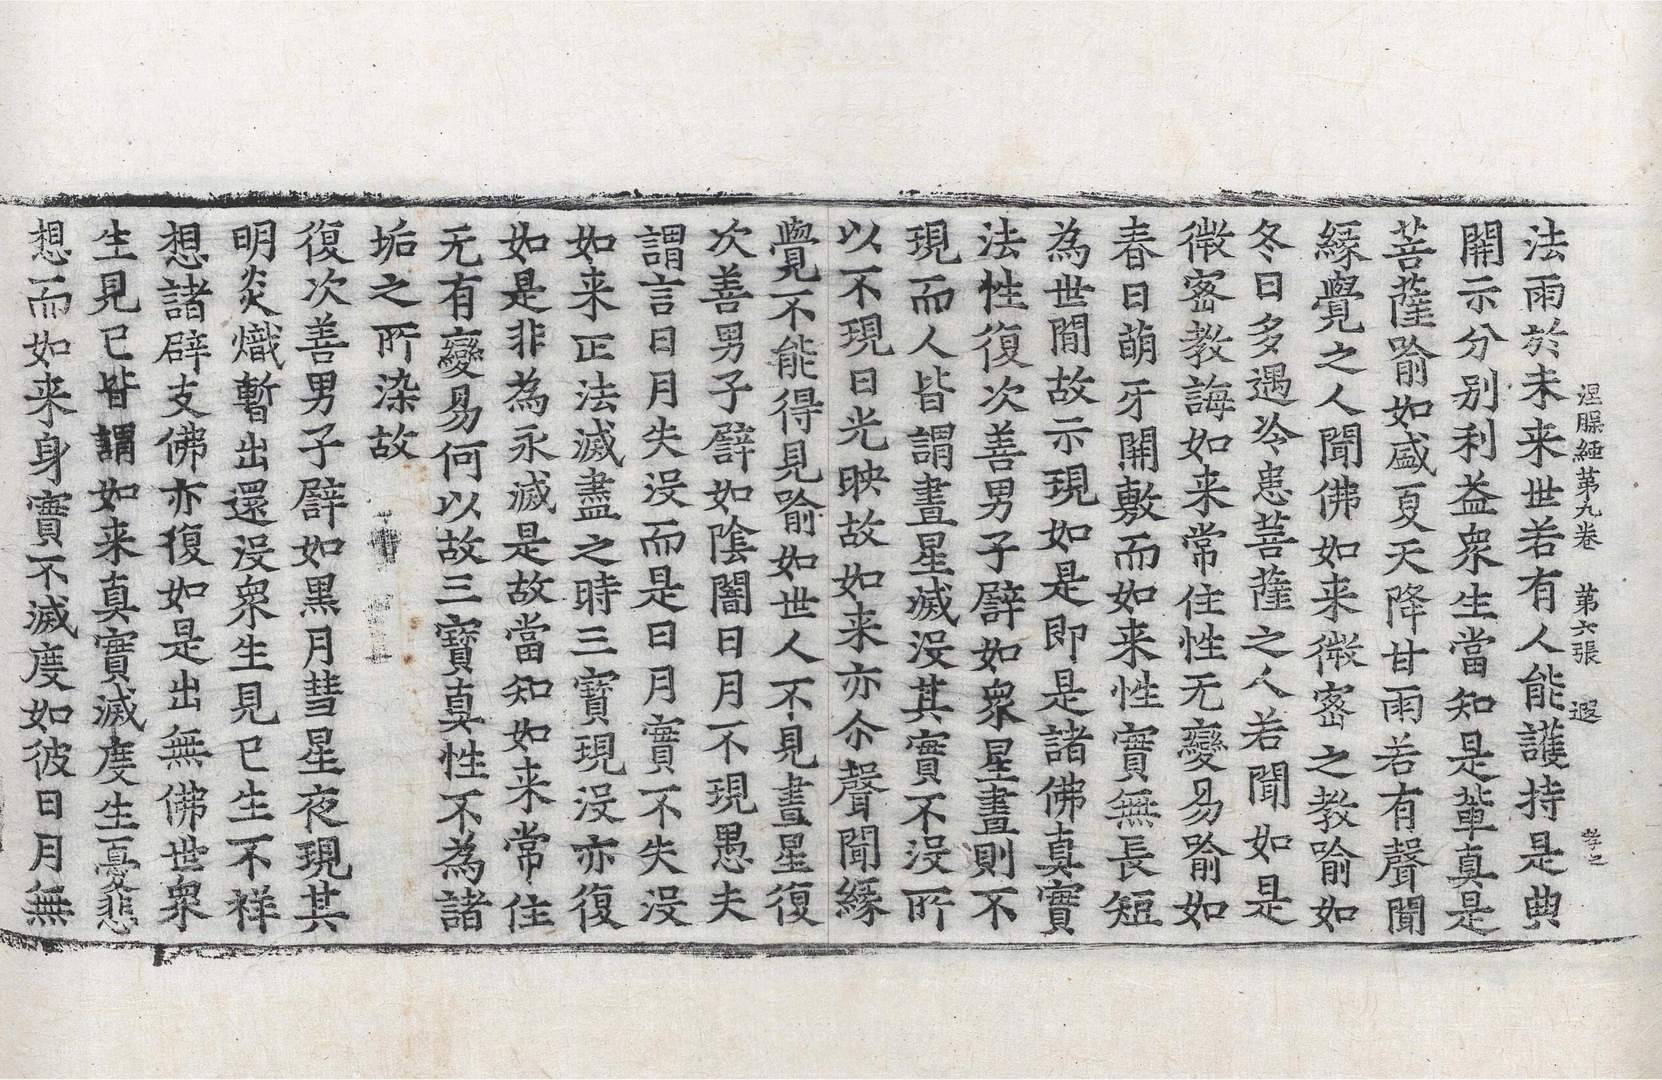 涅槃經第九卷 第六張 遐
法雨於未来世若有人能護持是典
開示分別利益衆生當知是輩真是
菩薩喻如盛夏天降甘雨若有聲聞
緣覺之人聞佛如来微密之教喻如
冬日多遇冷患菩薩之人若聞如是
微密教誨如来常住性无變易喻如
春日萌牙開敷而如来性實無長短
為世間故示現如是即是諸佛真實
法性復次善男子譬如衆星晝則不
現而人皆謂晝星滅没其實不没所
以不現日光映故如来亦尒聲聞緣
覺不能得見喻如世人不見晝星復
次善男子譬如陰闇日月不現愚夫
謂言日月失没而是日月實不失没
如来正法滅盡之時三寶現没亦復
如是非為永滅是故當知如来常住
无有變易何以故三寶真性不為諸
垢之所染故
復次善男子譬如黑月彗星夜現其
明炎熾暫出還没衆生見已生不祥
想諸辟支佛亦復如是出無佛世衆
生見已皆謂如来真實滅度生憂悲
想而如来身實不滅度如彼日月無